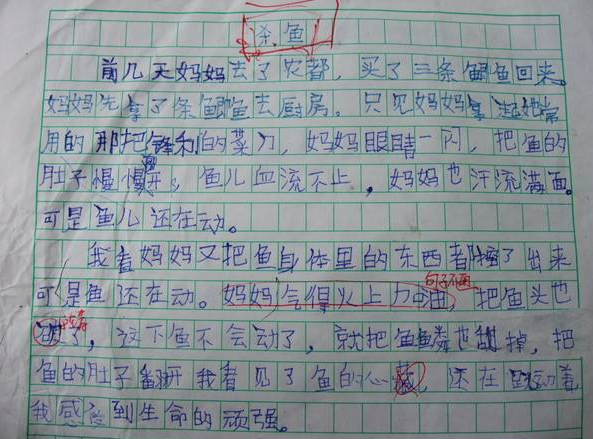 杀鱼
前几天妈妈去了农都，买了三条鲫鱼回来。
妈妈先拿了条鲫鱼去厨房。只见妈妈拿起她常
用的那把锋利的菜刀，妈妈眼睛一闪，把鱼的
肚子慢慢剥开。鱼儿血流不止，妈妈也汗流满面。
可是鱼儿还在动。
我看妈妈又把鱼身体里的东西都掏了出来
可是鱼还在动。妈妈气得火上加油，把鱼头也
句子不通
了，这下鱼不会动了，就把鱼鳞也刮掉，把
鱼的肚子翻开我看见了鱼的心藏，还在跳动着
我感受到生命的顽强。